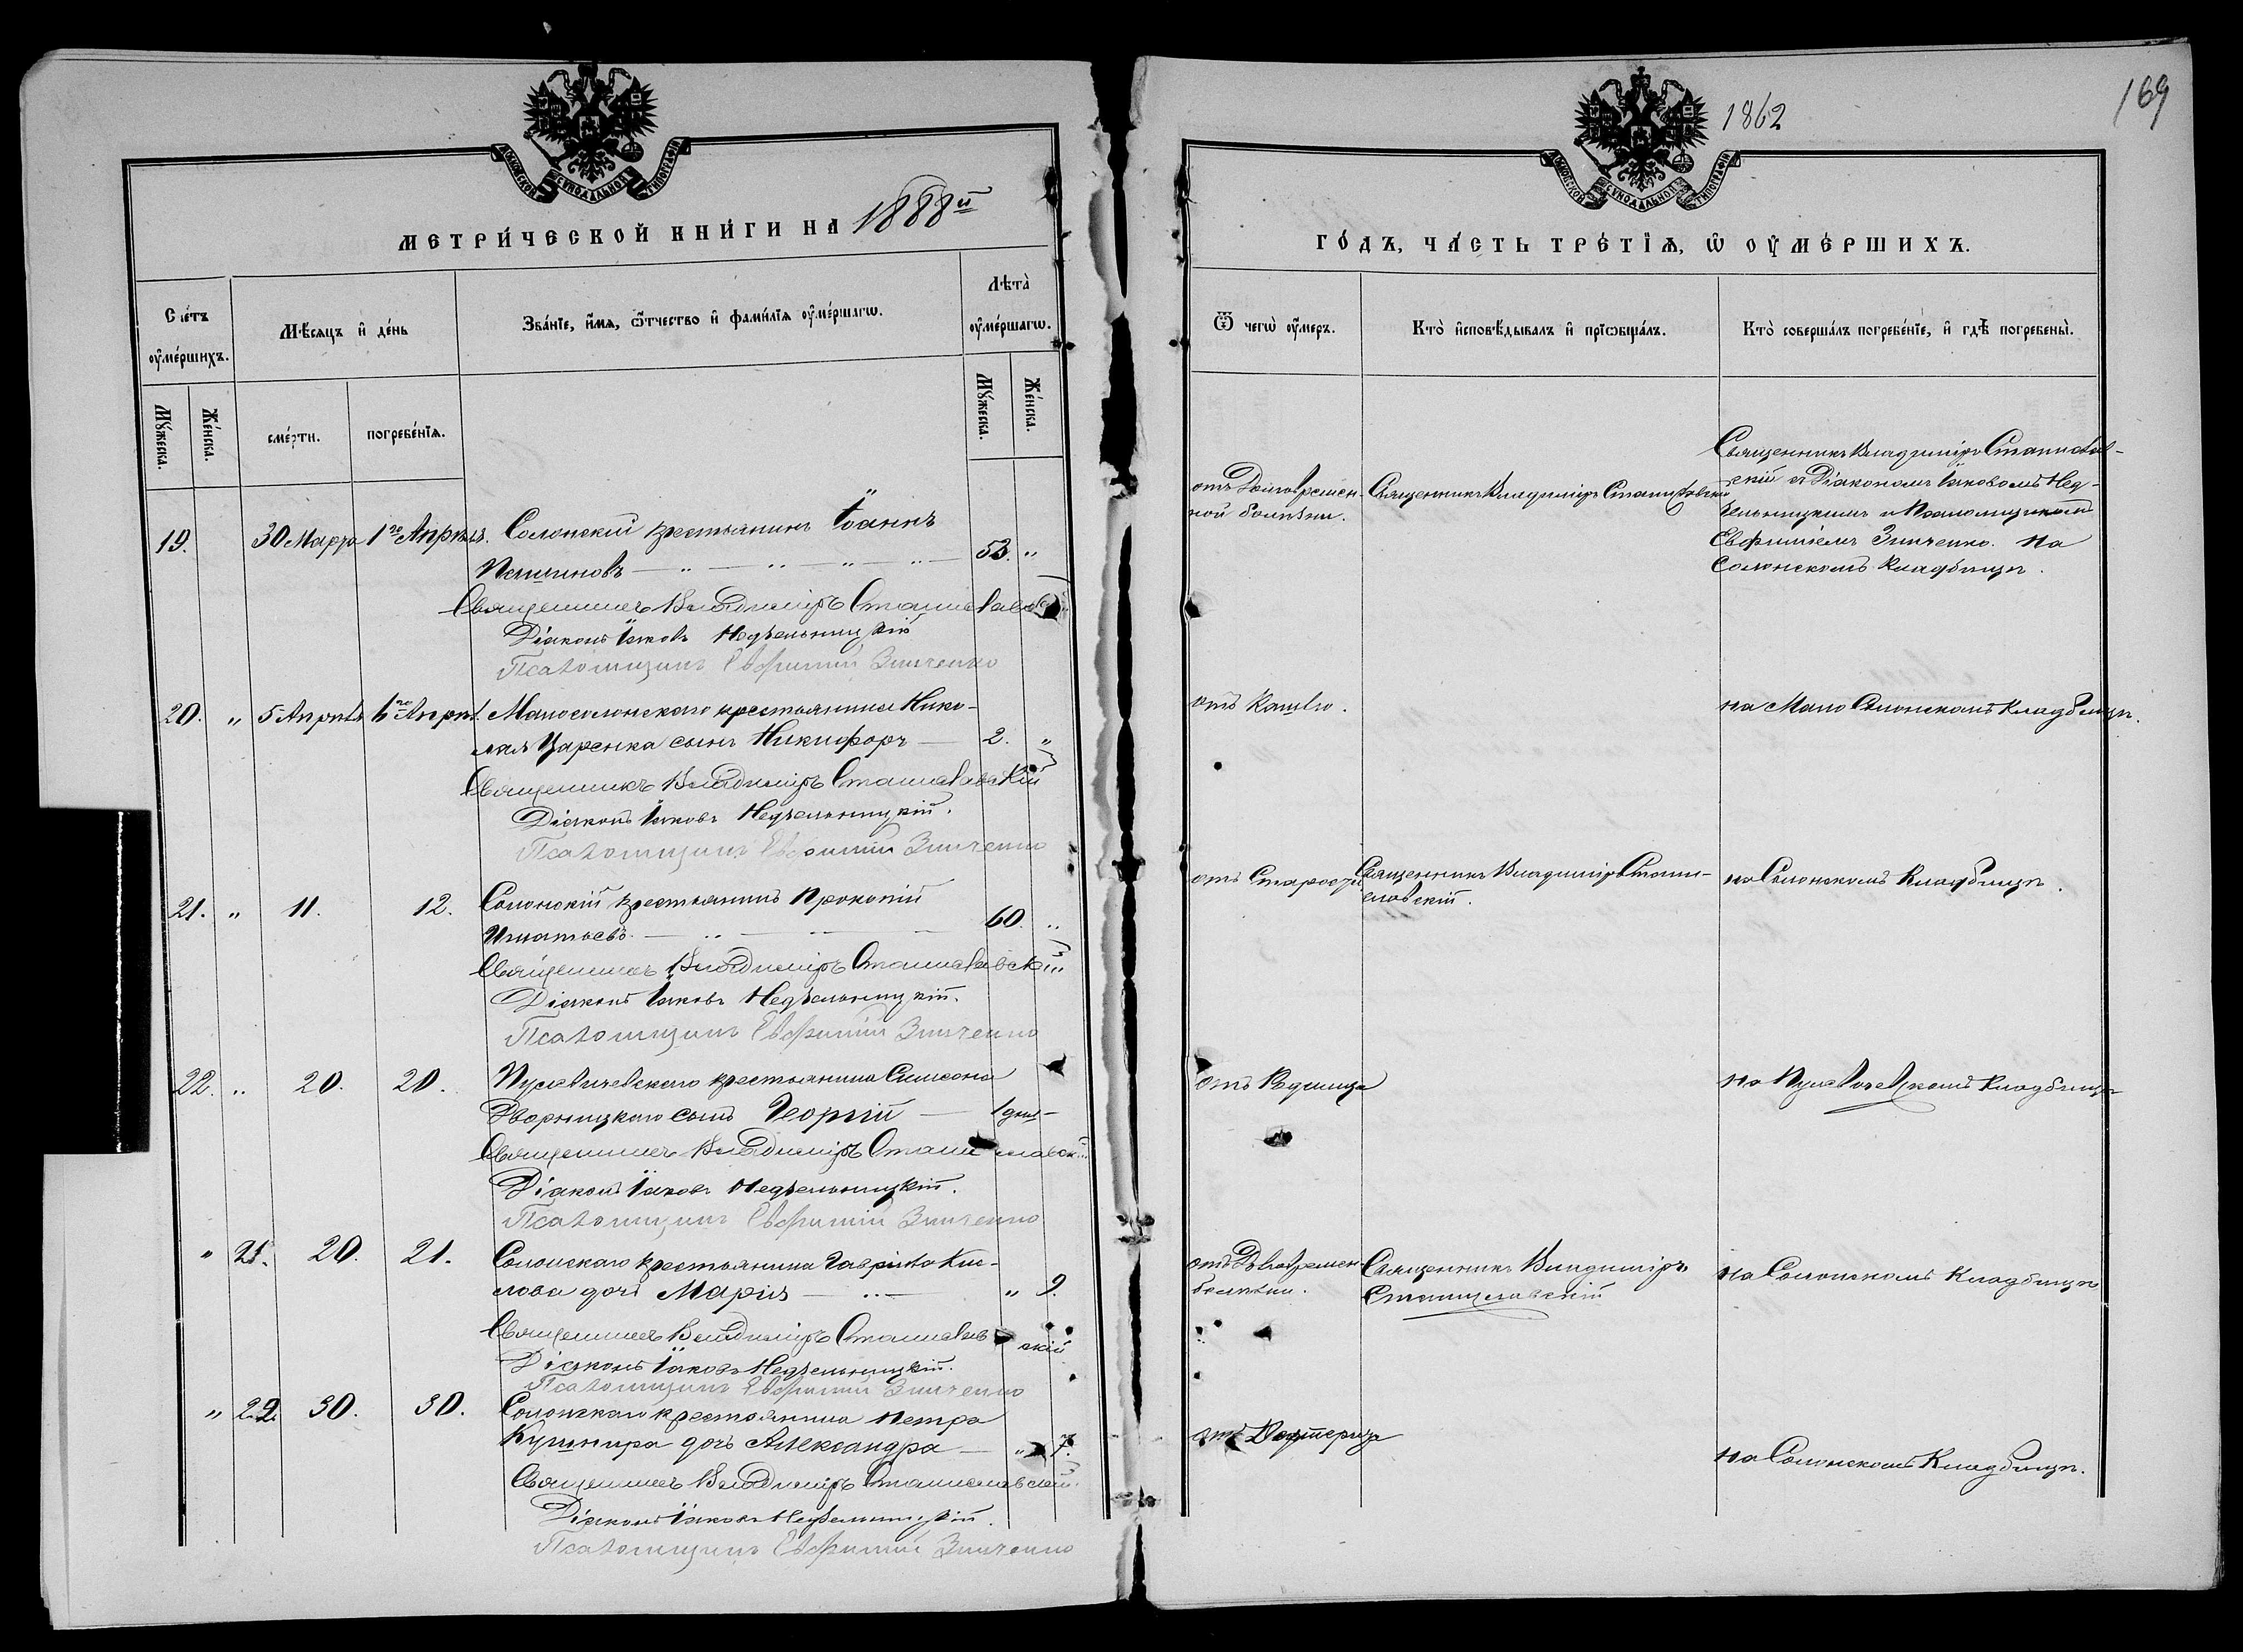 1862
169
МОСКОВСКОЙ СѴНОДАЛЬНОЙ ТИПОГРАФІИ
МОСКОВСКОЙ СѴНОДАЛЬНОЙ ТИПОГРАФІИ
МЕТРИ́ЧЕСКОЙ КНИ́ГИ НА 1888й
ГО́ДЪ, ЧА́СТЬ ТРЕ́ТІѦ, Ѡ ОУ҆МЕ́РШИХЪ.
Сче́тъ оу҆ме́ршихъ.
Мѣ́сяцъ и҆ де́нь
Зва́нїе, и҆́мя, ѻ҆́тчество и҆ фами́лїя оу҆ме́ршагѡ.
Лѣта̀ оу҆ме́ршагѡ.
Ѿ чегѡ̀ оу҆́меръ.
Кто̀ и҆сповѣ́дывалъ и҆ прїѡбща́лъ.
Кто̀ соверша́лъ погребе́нїе, и҆ гдѣ̀ погребены̀.
Му́жеска.
Же́нска.
сме́рти.
погребе́нїя.
Му́жеска.
Же́нска.
19. 30 Марта 1го Апрѣля. Солонскій крестьянинъ Іоаннъ
53. "
Священникъ Владиміръ Станиславскій
Діаконъ Іаковъ Недѣльницкій
Псаломщикъ Евфимій Зинченко
отъ Долговремен-
ной болѣзни.
Священникъ Владиміръ Станиславскій
Священникъ Владиміръ Станислав-
скій съ Діакономъ Іаковомъ Нед-
ѣльницкимъ и Псаломщикомъ
Евфиміемъ Зинченко. На
Солонскомъ Кладбищѣ.
20. " 5 Апрѣля 6го Апрѣл. Малосолонскаго крестьянина Нико-
лая Царенка сынъ Никифоръ — 2. "
Священникъ Владиміръ Станиславскій
Діаконъ Іаковъ Недѣльницкій.
Псаломщикъ Евфимій Зинченко
отъ Кашлю.
на Мало Солонскомъ Кладбищѣ.
21. " 11. 12. Солонскій крестьянинъ Прокопій
Игнатьевъ. — 60. "
Священникъ Владиміръ Станиславскій
Діаконъ Іаковъ Недѣльницкій.
Псаломщикъ Евфимій Зинченко
отъ Старости
Священникъ Владиміръ Стани-
славскій.
на Солонскомъ Кладбищѣ.
22. " 20. 20. крестьянина Симеона
Дворницкаго сынъ Георгій — 1 дня —
Священникъ Владиміръ Станиславскій
Діаконъ Іаковъ Недѣльницкій.
Псаломщикъ Евфимій Зинченко
отъ Родимца
на Кладбищѣ
" 21. 20. 21. Солонскаго крестьянина Гавріила Кис-
лова дочь Марія — " 9.
Священникъ Владиміръ Станиславскій
Діаконъ Іаковъ Недѣльницкій.
Псаломщикъ Евфимій Зинченко
болѣзни.
Священникъ Владиміръ
Станиславскій
на Солонскомъ Кладбищѣ
" 22. 30. 30. Солонскаго крестьянина Петра
Кушнира дочь Александра — " 7.
Священникъ Владиміръ Станиславскій.
Діаконъ Іаковъ Недѣльницкій.
Псаломщикъ Евфимій Зинченко
на Солонскомъ Кладбищѣ.